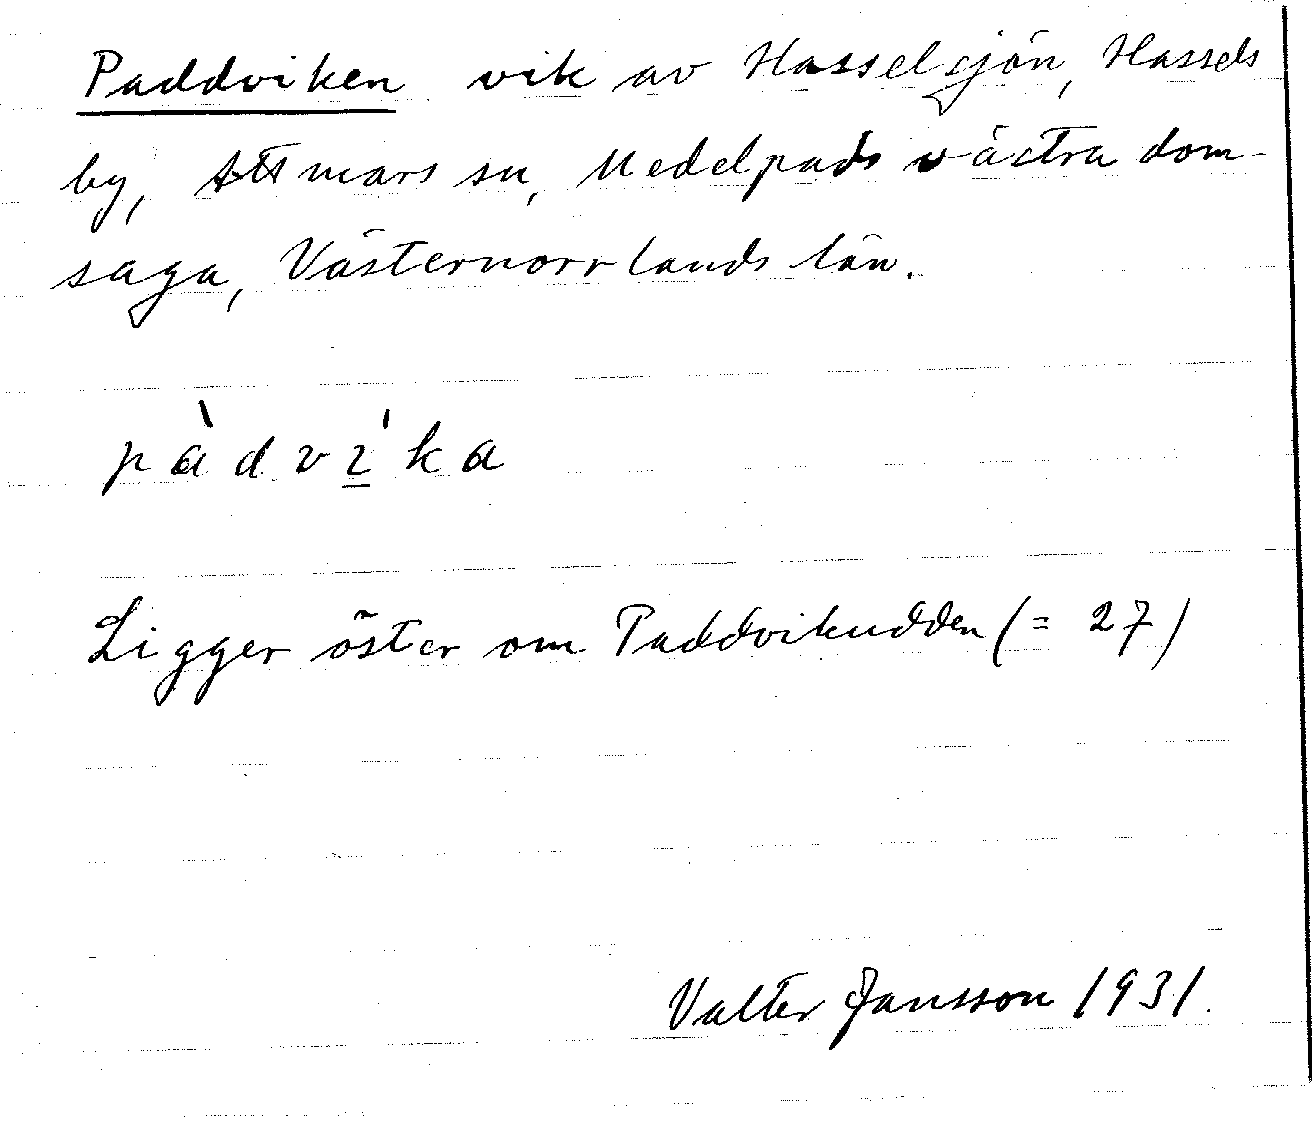 Paddviken vik av Hasselsjön, Hassels
by, Attmars sn, Medelpads västra dom-
saga, Västernorrlands län.
pàdvi̲ˈka
Ligger öster om Paddvikudden (= 27)
Valter Jansson 1931.